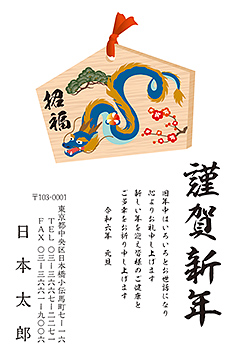 招福
謹賀新年
旧年中はいろいろとお世話になり
心よりお礼申し上げます
新しい年を迎え皆様のご健康と
ご多幸をお祈り申し上げます
令和六年 元旦
〒103-0001
東京都中央区日本橋小伝馬町七ー一六
TEL 〇三ー三六六七ー二二七一
FAX 〇三ー三六六一ー九〇〇六
日本太郎